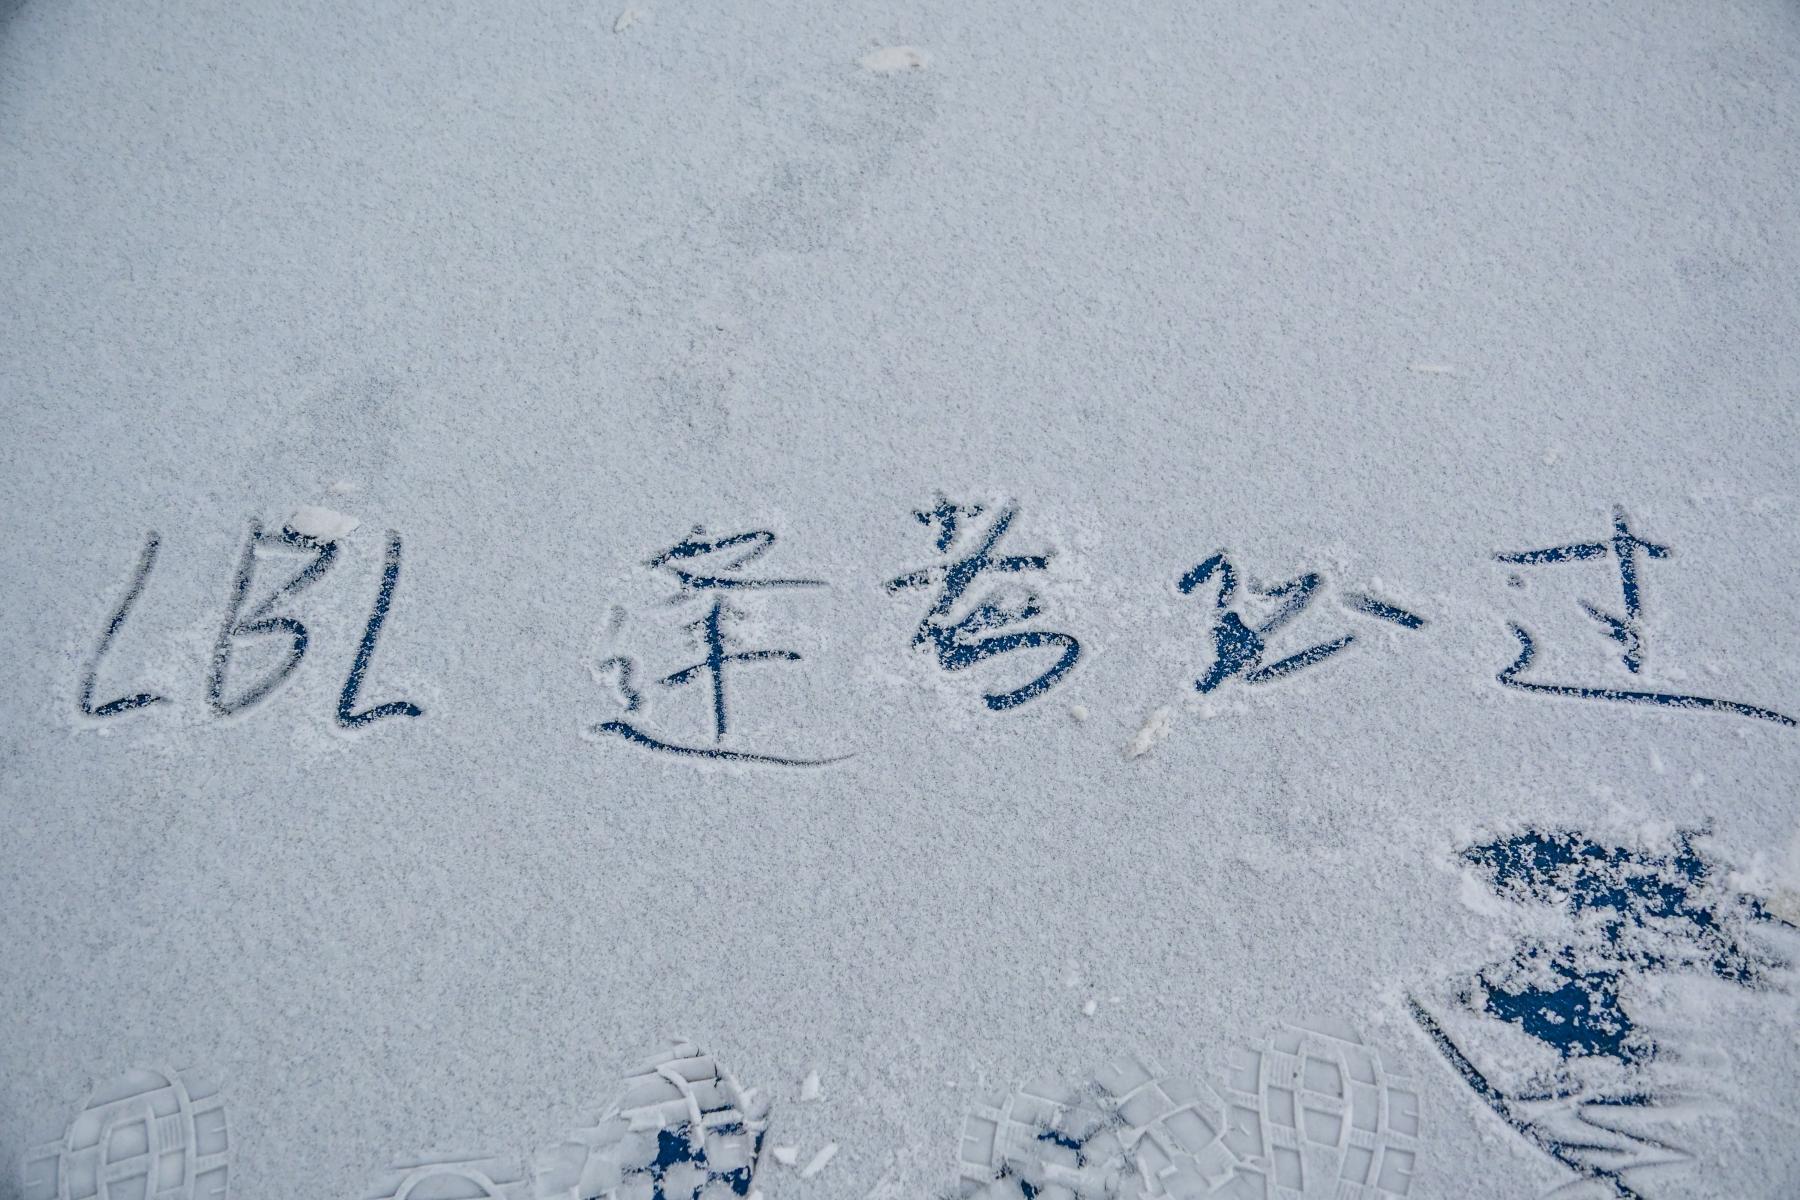 LBL 逢考必过